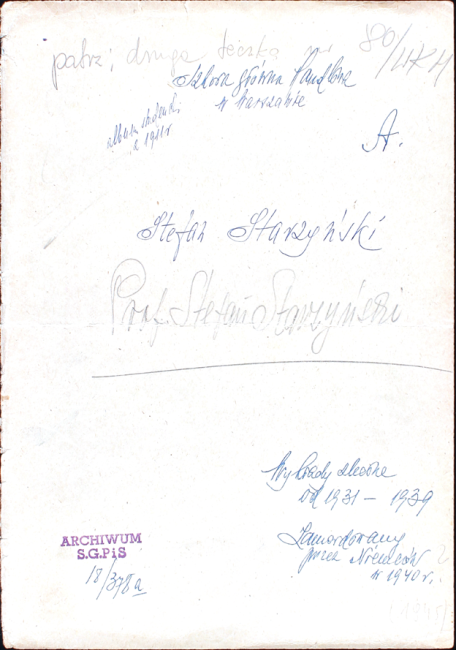 patrz; druga teczka
80/UKH
Szkoła główna Handlowa
w Warszawie
album
z 1911r
A.
Stefan Starzyński
Prof. Stefan Starzyński
Wykłady zlecone
od 1931 - 1939
Zamordowany
przez Niemców
w 1940r.
ARCHIWUM
S.G.P.i S
18/378a